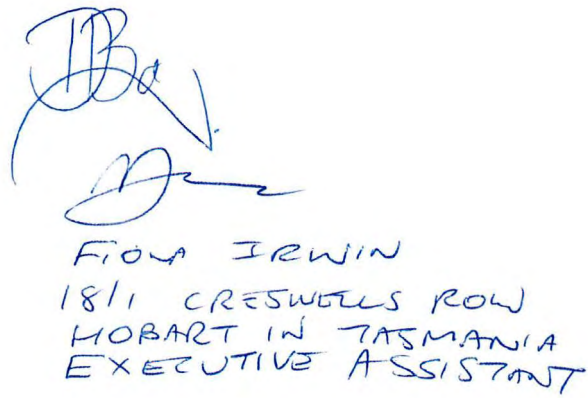 FIONA IRWIN
18/1 CRESWELLS ROW
HOBART IN TASMANIA
EXECUTIVE ASSISTANT